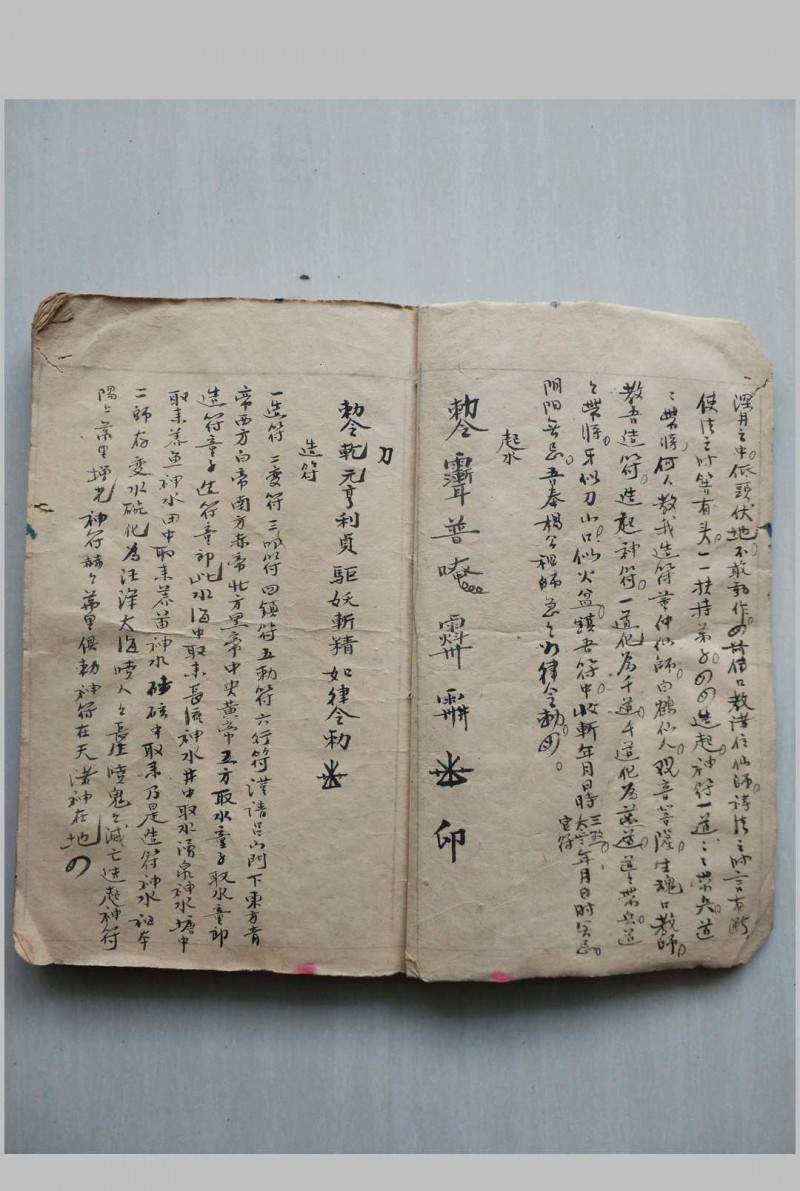 深井之中低頭伏地不敢動作 口教 仙師 法之時言有
使法之時 有头一一扶持弟子 造起神符一道二 帶兵道
二帶將何人教我造符 仲仙師白鶴仙人观音菩薩生魂口教師
教吾造符造起神符一道化為千道千道化為萬道道 帶兵道
帶將牙似刀山口似火盆鎮吾符中收斬年月日時三煞官符太岁年月日時
陰陽無忌吾奉楊公祖師急 如律令勅
起水
勅令 普唵 印
刀
勅令乾元亨利貞驅妖斬精如律令勅
造符
一造符二变符三 符四鎮符五勅符六行符謹請呂山門下東方青
帝西方白帝南方赤帝北方黑帝中央黄帝五方取水童子取水童郎
造符童子造符童郎此水海中取来長流神水井中取水湧泉神水塘中
取来养魚神水田中取来养苗神水 中取来乃是造符神水祖本
二師存变水碗化為汪洋大海 人 長生 鬼 滅亡造起神符
陽 萬里增光神符赫 萬里俱勅神符在天 神在地